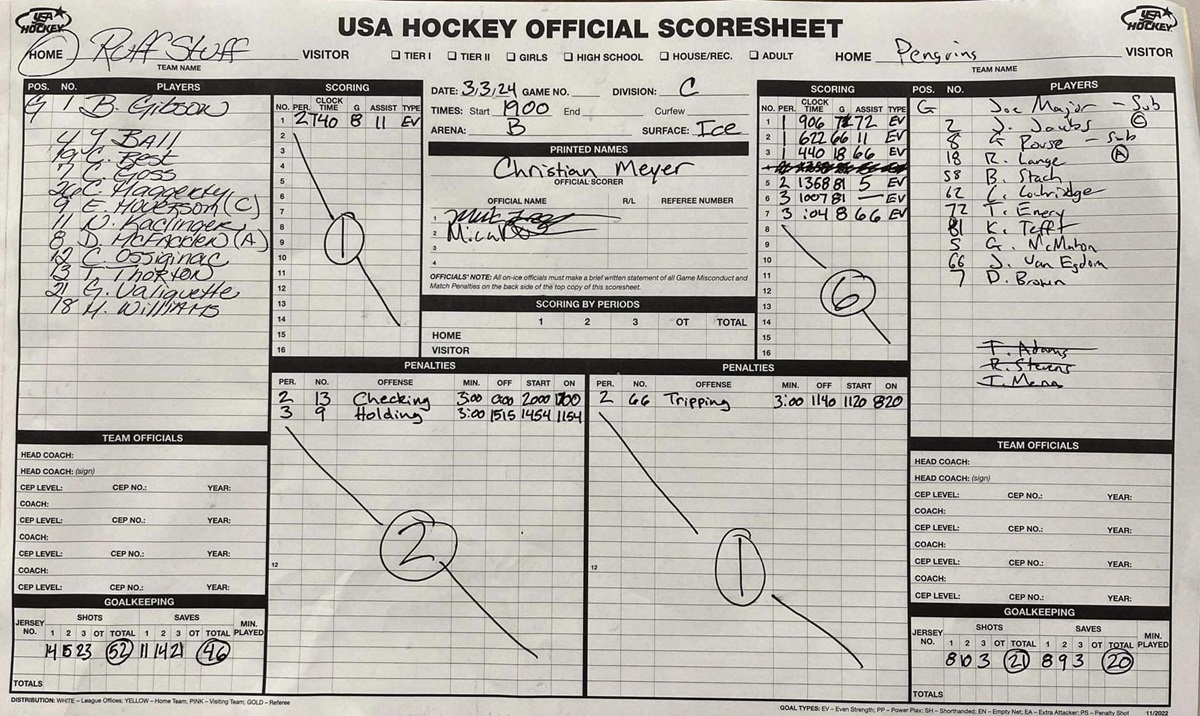 USA HOCKEY OFFICIAL SCORESHEET
USA HOCKEY
USA HOCKEY
HOME Ruff Stuff VISITOR
TEAM NAME
TIER I TIER II GIRLS HIGH SCHOOL HOUSE/REC. ADULT
HOME Penguins VISITOR
TEAM NAME
POS. NO. PLAYERS
G 1 B. Gibson
4 J. BALL
19 C. Best
7 C. Goss
26 C. Haggerty
9 (C)
11 N. Kaclinger
8 D. McFadden (A)
12 C. Ossiginac
13 T. Thorton
21 G. Valiquette
18 M. WilliAMS
SCORING
NO. PER. CLOCK TIME G ASSIST TYPE
1 2 1740 8 11 EV
2
3
4
5
6
7
8
9
10
11
12
13
14
15
16
1
DATE: 3,3,24 GAME NO. DIVISION: C
TIMES: Start 1900 End Curfew
ARENA: B SURFACE: Ice
PRINTED NAMES
Christian Meyer
OFFICIAL SCORER
OFFICIAL NAME R/L REFEREE NUMBER
1
2
3
4
OFFICIALS' NOTE: All on-ice officials must make a brief written statement of all Game Misconduct and
Match Penalties on the back side of the top copy of this scoresheet.
SCORING BY PERIODS
1 2 3 OT TOTAL
HOME
VISITOR
SCORING
NO. PER. CLOCK TIME G ASSIST TYPE
1 1 906 72 EV
2 1 622 66 11 EV
3 1 440 18 66 EV
4
5 2 1368 81 5 EV
6 3 1007 81 — EV
7 3 :04 8 66 EV
8
9
10
11
12
13
14
15
16
6
POS. NO. PLAYERS
G Joe Major - Sub
2 J. Jacobs (C)
8 G. Rouse - Sub
18 R. Lange (A)
58 B. Stach
62 C. Loughridge
72 T. Enery
81 K. Tefft
5 G. McMahon
66 J. Van Egdom
7 D. Brown
T. Adams
R. Stevens
I. Mena
PENALTIES
PER. NO. OFFENSE MIN. OFF START ON
2 13 Checking 3:00 0:00 2000 1700
3 9 Holding 3:00 1515 1454 1154
12
2
PENALTIES
PER. NO. OFFENSE MIN. OFF START ON
2 66 Tripping 3:00 1140 1120 820
12
1
TEAM OFFICIALS
HEAD COACH:
HEAD COACH: (sign)
CEP LEVEL: CEP NO.: YEAR:
COACH:
CEP LEVEL: CEP NO.: YEAR:
COACH:
CEP LEVEL: CEP NO.: YEAR:
COACH:
CEP LEVEL: CEP NO.: YEAR:
GOALKEEPING
JERSEY NO. SHOTS SAVES MIN. PLAYED
1 2 3 OT TOTAL 1 2 3 OT TOTAL
14 15 23 52 11 14 21 46
TOTALS
TEAM OFFICIALS
HEAD COACH:
HEAD COACH: (sign)
CEP LEVEL: CEP NO.: YEAR:
COACH:
CEP LEVEL: CEP NO.: YEAR:
COACH:
CEP LEVEL: CEP NO.: YEAR:
COACH:
CEP LEVEL: CEP NO.: YEAR:
GOALKEEPING
JERSEY NO. SHOTS SAVES MIN. PLAYED
1 2 3 OT TOTAL 1 2 3 OT TOTAL
8 10 3 21 8 9 3 20
TOTALS
DISTRIBUTION: WHITE – League Offices; YELLOW – Home Team; PINK – Visiting Team; GOLD – Referee
GOAL TYPES: EV – Even Strength; PP – Power Play; SH – Shorthanded; EN – Empty Net; EA – Extra Attacker; PS – Penalty Shot 11/2022